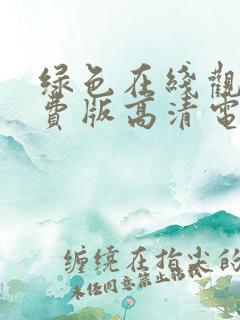 绿色在綫觀
費版高清電
缠绕在指尖的
未经同意禁止转载